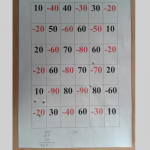 10 -40 40 30 -20
-20 50 -60 60 50
20 -60 70 -80 60
-20 60 -80 -70 70
10 -90 -90 80 -60
-20 30 40 -30 10